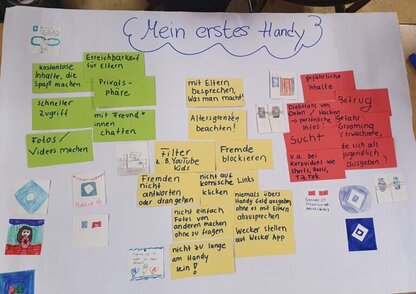 Mein erstes Handy
kostenlose
Inhalte, die
Spaß machen
Erreichbarkeit
für Eltern
Privats-
phäre
schneller
Zugriff
mit Freund*
innen
chatten
Fotos /
Videos machen
mit Eltern
besprechen,
was man macht!
Altersgrenze
beachten!
Filter
z.B. YouTube
Kids
Fremde
blockieren
Fremden
nicht
antworten
oder dran gehen
nicht auf
komische Links
klicken
nicht einfach
Fotos von
anderen machen
ohne zu fragen
niemals übers
Handy Geld ausgeben
ohne es mit Eltern
abzusprechen
Wecker stellen
auf Wecker App
nicht zu lange
am Handy
sein!
gefährliche
Inhalte
Diebstahl von
Daten / Hacking
persönliche
Infos
Betrug
Gefahr!
Grooming
(Erwachsene,
die sich als
jugendlich
ausgeben)
Sucht
v.a. bei
Kurzvideos wie
Shorts, Reels,
TikTok